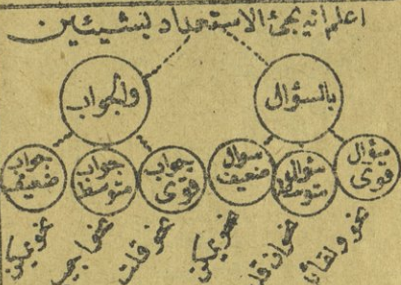 اعلم انه يجئ الاستعداد بشيئين
بالسؤال
والجواب
سؤال قوى
سؤال متوسط
سؤال ضعيف
جواب قوى
جواب متوسط
جواب ضعيف
نحو ولقائل
نحو ان قلت
نحو يمكن
نحو قلت
نحو اجيب
نحو يمكن